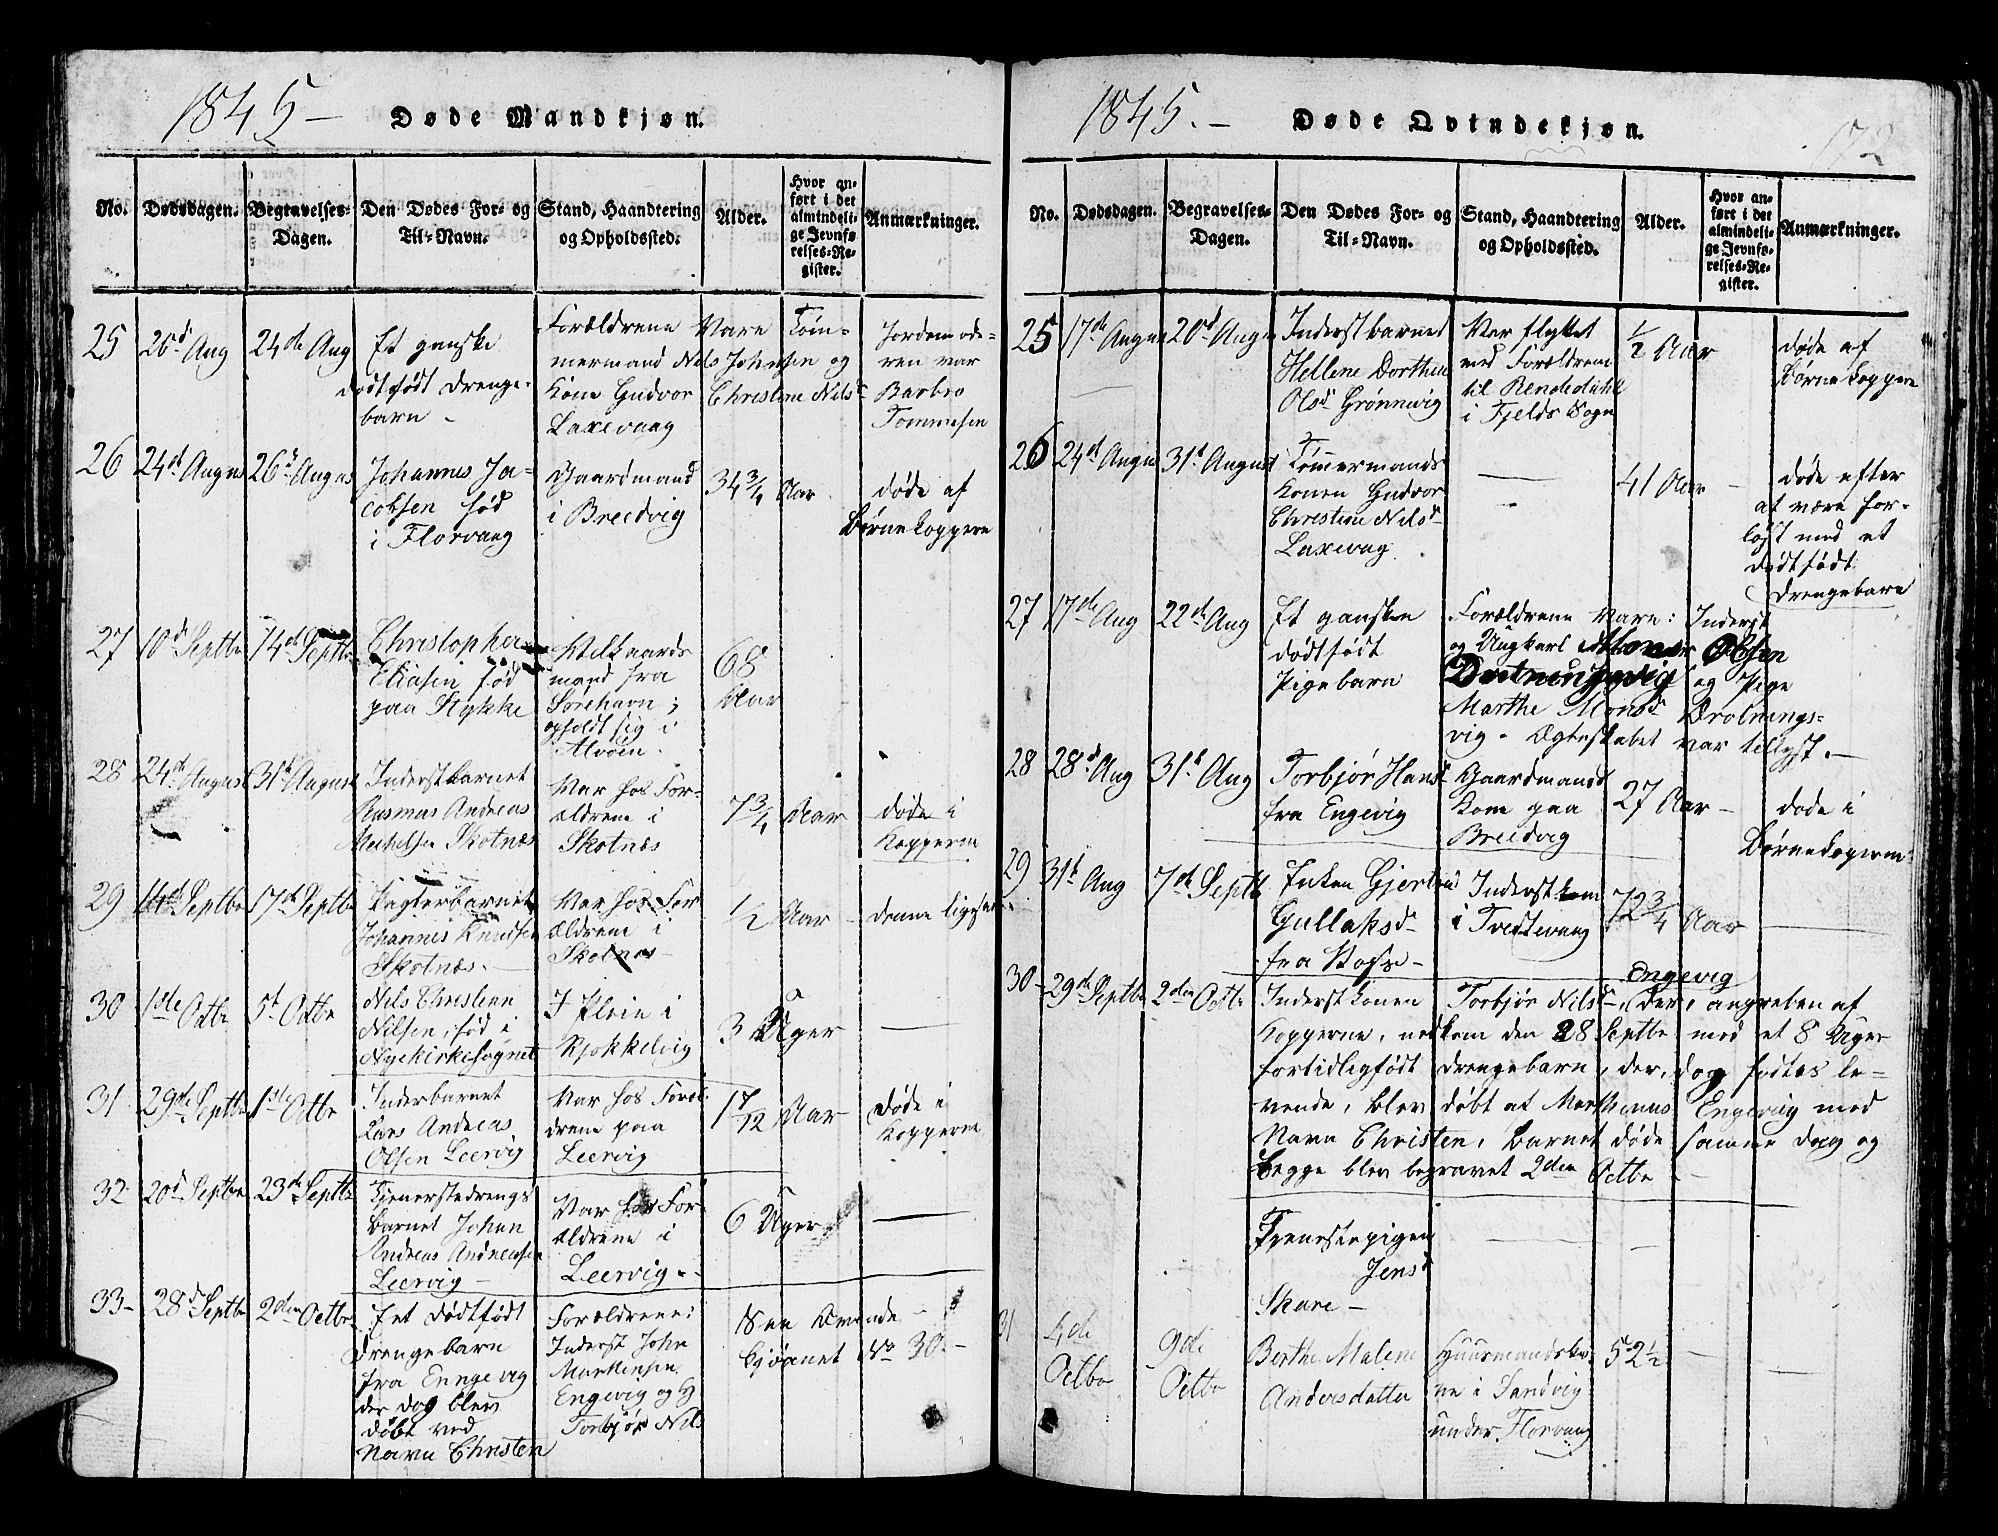 1845 –
Døde Mandkjøn.
No.
Dødsdagen.
Begravelses-
Dagen.
Den Dødes For- og
Til-Navn.
Stand, Haandtering
og Opholdssted.
Alder.
Hvor an-
ført i det
almindeli-
ge Jevnfø-
relses-Re-
gister.
Anmærkninger.
25
20d Aug
24de Aug
Et ganske
dødfødt Drenge-
barn –
Forældrene Vare Tøm-
mermand Nils Johnsen og
Kone Gudvor Christine Nilsd
Laxevaag
Jordemode-
ren var
Barbro
Tommesen
26
24d August
26d August
Johannes Ja-
cobsen fød
i Florvaag
Gaardmand
i Breedvig
34 3/4 Aar
døde af
Børnekoppere
27
10d Septbr
14de Septbr
Christopher
Eliasen fød
paa Stykke
mand fra
Sørehavn;
opholdt sig i
Alvøen.
68
Aar
28
24d August
31t August
Inderstbarnet
Rasmus Andreas
Michelsen Skotnæs
Var hos For-
ældrene i
Skotnæs
7 3/4 Aar
døde i
Kopperne
29
14d Septbr
17de Septbr
Pagterbarnet
Johannes Knudsen
Skotnæs. –
Var hos For
ældrene i
Skotnæs –
1/2 Aar
denne ligesaa.
30
1ste Octbr
5t Octbr
Nils Christian
Nilsen, fød i
Nyekirkesognet
I Pleie i
Kjøkkelvig
3 Uger
31
29de Septbr
1ste Octbr
Inderbarnet
Lars Andreas
Olsen Leervig
Var hos Foræl-
drene paa
Leervig
1 7/12 Aar
Døde i
Kopperne
32
20d Septbr
23de Septbr
Tjenerstedrengs
Barnet Johan
Andreas Andreassen
Leervig –
Var hos For
ældrene i
Leervig –
6 Uger
33 –
28d Septbr
2den Octbr
Et dødfødt
Drengebarn
fra Enngevig
der dog blev
døbt ved
Navn Christen
Forældrene:
Inderst John
Marthinsen
Engevig og H
Torbjør Nils
See Qvinde –
kjønnet No 30 –
1845. –
Døde Qvindekjøn.
172
No.
Dødsdagen.
Begravelses-
Dagen.
Den Dødes For- og
Til-Navn.
Stand, Haandtering
og Opholdssted.
Alder.
Hvor an-
ført i det
almindeli-
ge Jevnfø-
relses-Re-
gister.
Anmærkninger.
25
17de Augu
20d Augu
Inderstbarnet
Hellene Dorthea
Olsd Grønnevig
Var flyttet
med Forældrene
til
i Fjelds Sogn
1/2 Aar
døde af
Børnekoppere
26
24d Augu
31t August
Tømmermands
Konen Gudvor
Christine Nilsd
Laxevaag.
41 Aar
døde efter
at være for-
løst med et
dødfødt
Drengebarn
27
17de Aug
22de Aug
Et ganske
dødfødt
Pigebarn
Forældrene Vare: Inderst
og Ungkarl Mons Olsen
og Pige
Marthe Monsd Drotnings-
vig. Ægteskabet var tillyst. –
28
28d Aug
31t Aug
Torbjør Hansd
fra Engevig
Gaardmands
Kone paa
Breedvig
27 Aar –
døde i
Børnekopperne
29
31t Aug
7de Septb
Gjertrud
Gullaksd
fra Voss –
Inderstkone
i Tvedtevaag
72 3/4 Aar
30 –
29de Septbr
2den Octbr
Inderstkonen Torbjør Nilsd Engevig, der, angreben af
Kopperne, nedkom den 28 Septbr med et 8 Uger
fortidligfødt Drengebarn, der, dog fødtes le-
vende, blev døbt af Marthinus Engevig med
Navn Christen, Barnet døde samme Dag og
begge blev begravet 2den Octbr –
Tjenestepigen
Jensd
Skare –
31
4de
Octbr
9de
Octbr
Berthe Malene
Andersdatter
Huusmandsko-
ne i Sandvig
under Florvaag
52 1/2